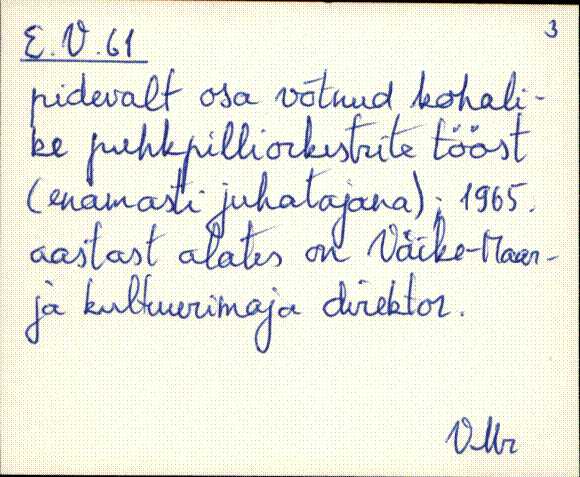 3
E.V.61
pidevalt osa võtnud kohali-
ke puhkpilliorkestrite tööst
(enamasti juhatajana); 1965.
aastast alates on Väike-Maar-
ja kultuurimaja direktor.